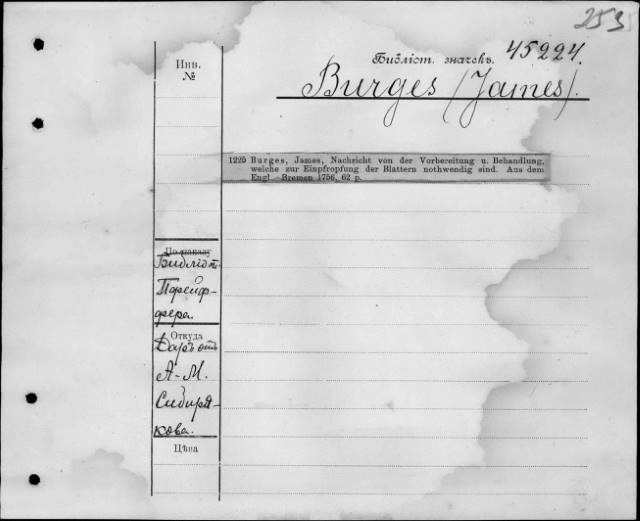 253
Инв.
№
Библіот. значекъ. 45224.
Burges (James).
1225 Burges, James, Nachricht von der Vorbereitung u. Behandlung,
welche zur Einpfropfung der Blattern nothwendig sind. Aus dem
Engl.—Bremen 1756, 62 p.
По заказу
Библіот.
Пфейф-
фера.
Откуда
Даръ отъ
А. М.
Сибиря-
кова.
Цѣна